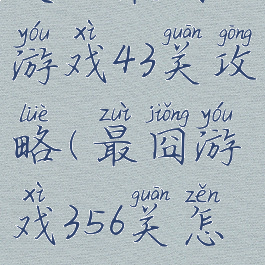 yóu xì guān gōng
游戏43关攻
lüè zuì jiǒng yóu
略(最囧游
xì guān zěn
戏356关怎